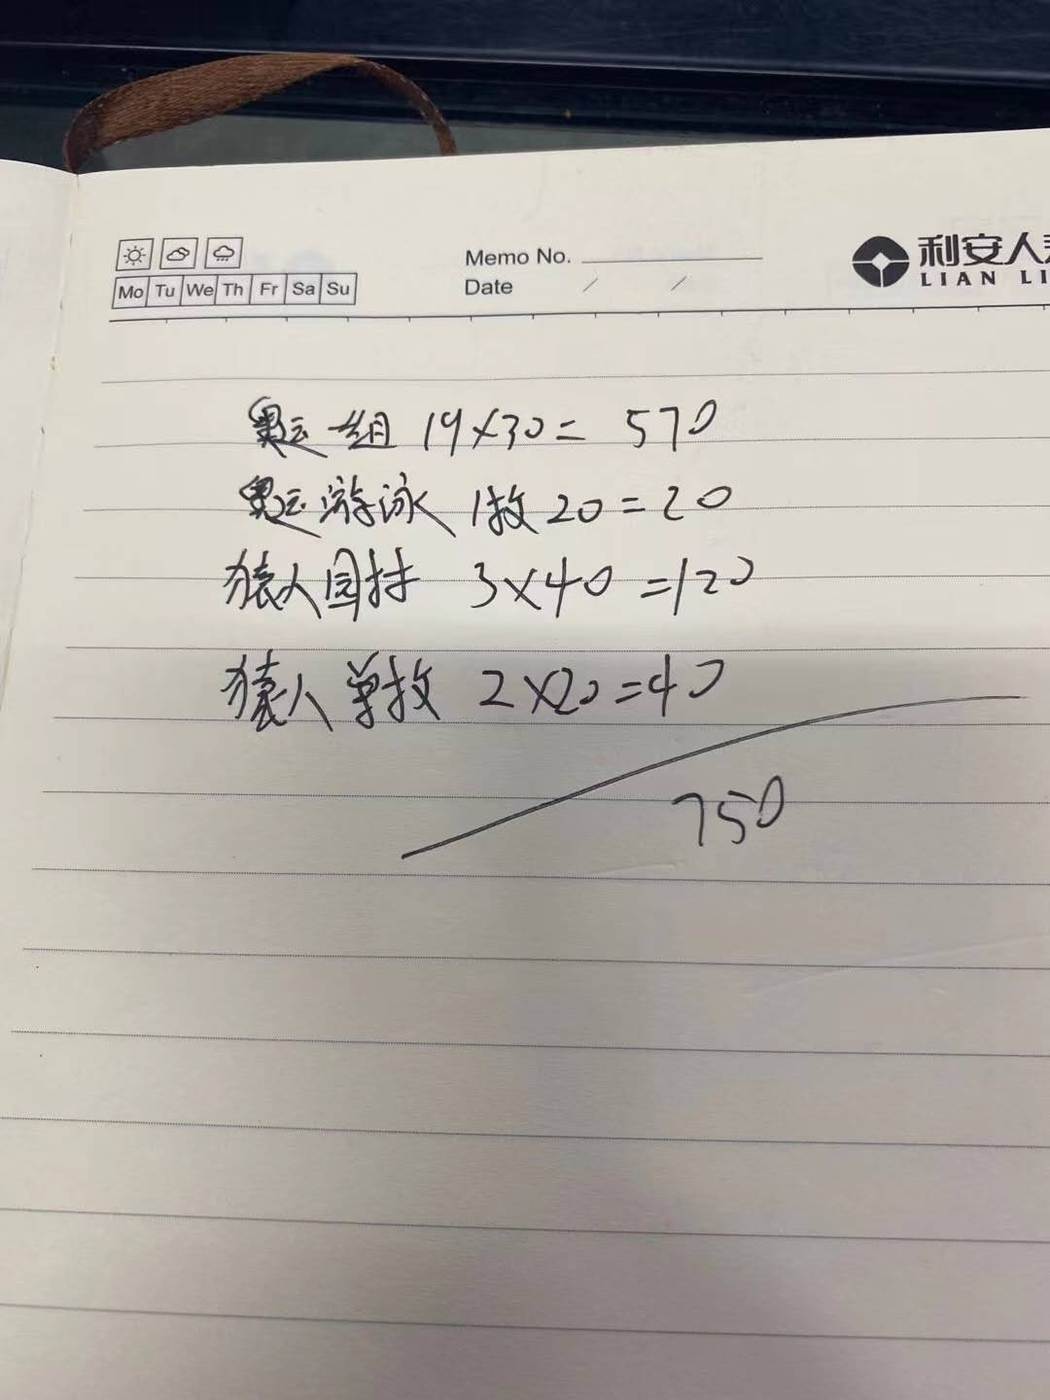 Mo Tu We Th Fr Sa Su
Memo No.
Date / /
利安人寿
LIAN LI
奥运一组 19×30= 570
奥运游泳 1枚20=20
猿人 3×40=120
猿人单枚 2×20=40
750